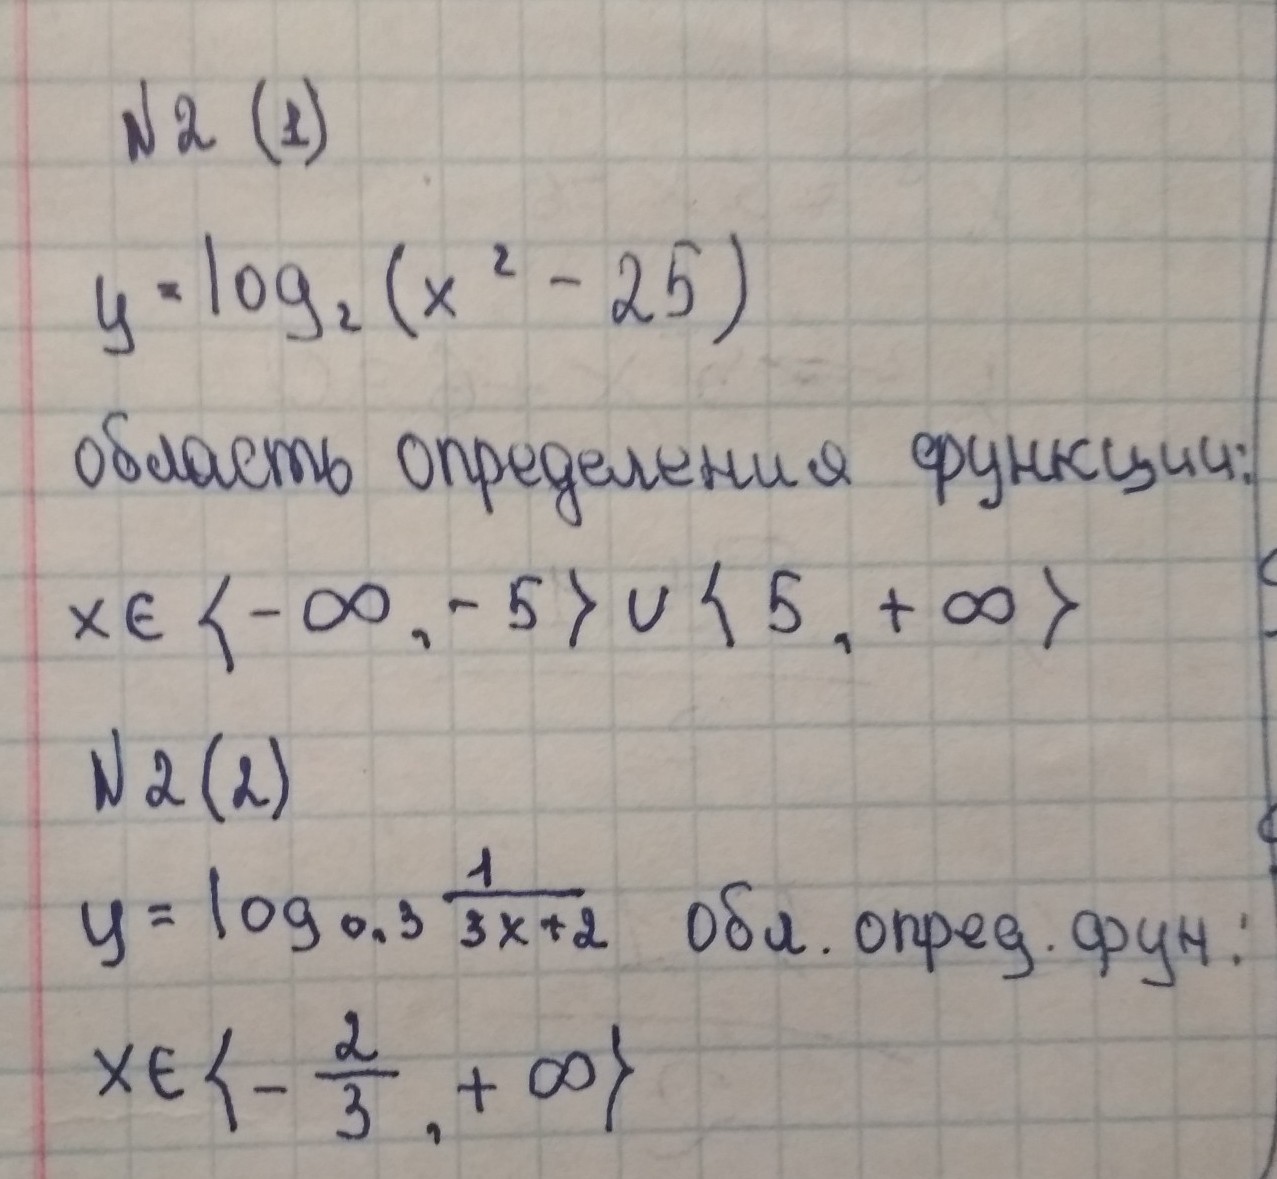 N2 (1)
y = log₂ (x² - 25)
область определения функции:
x ∈ {-∞, -5} ∪ {5, +∞}
N2 (2)
y = log₀.₃ 1/(3x+2) обл. опред. фун:
x ∈ {-2/3, +∞}